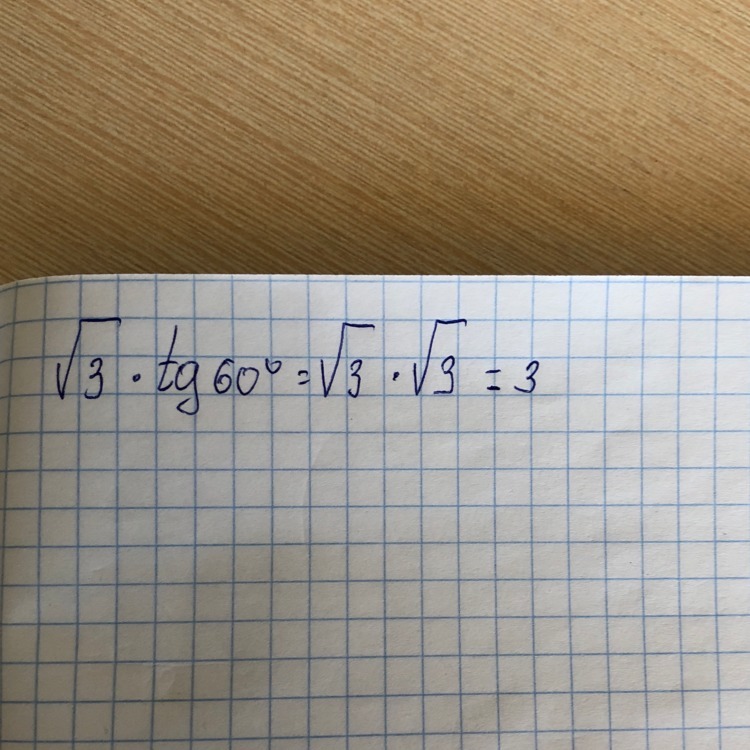 √3 · tg 60° = √3 · √3 = 3